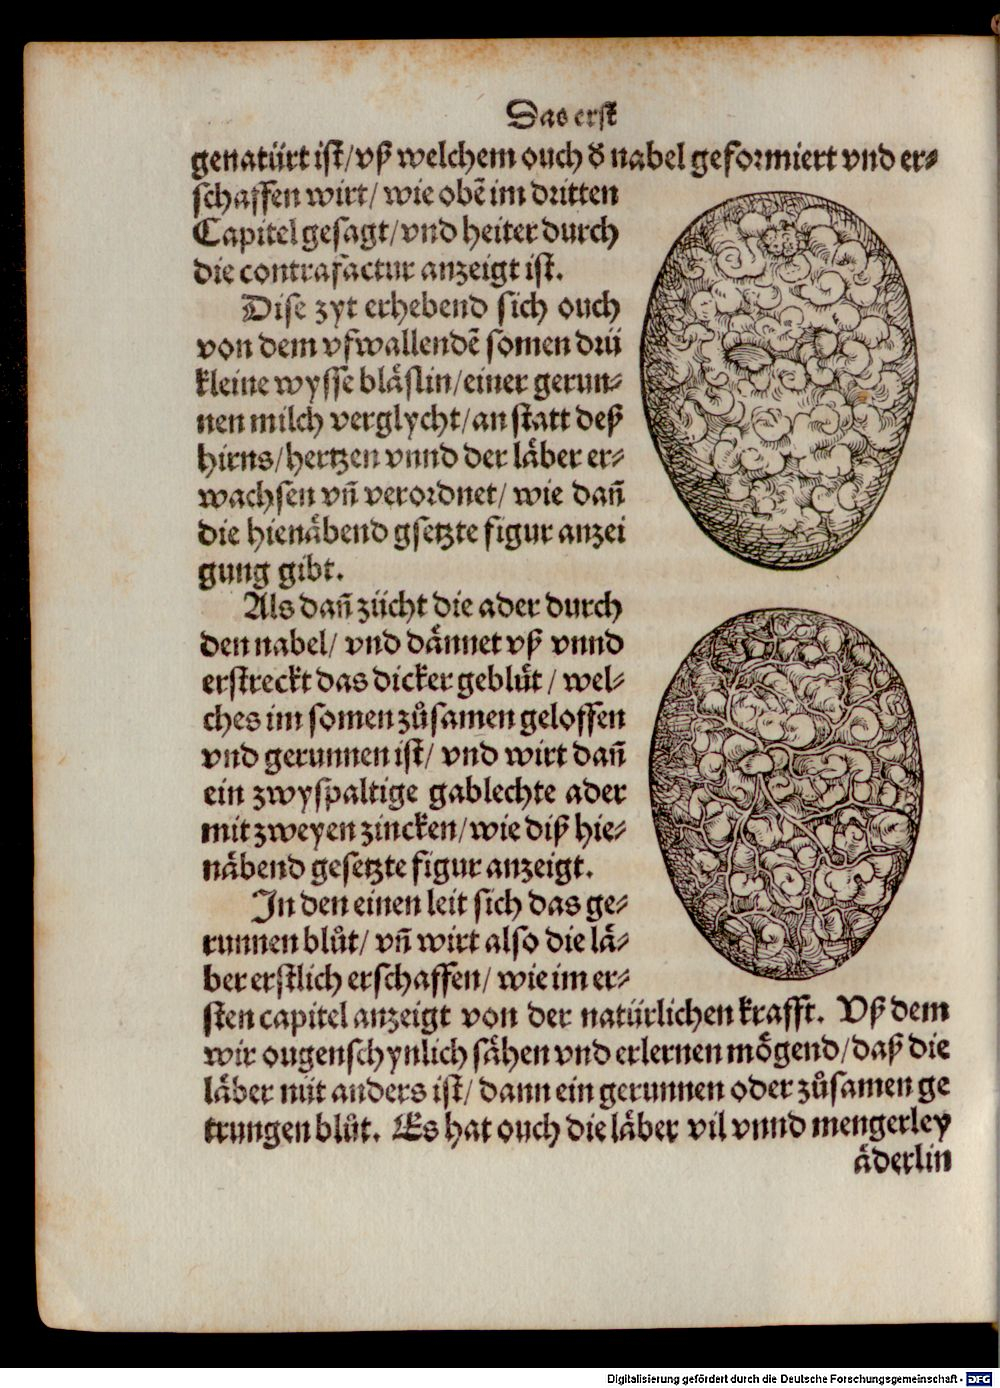 Das erst
genatürt ist/vß welchem ouch d nabel geformiert vnd er⸗
schaffen wirt/ wie obē im dritten
Capitel gesagt/vnd heiter durch
die contrafactur anzeigt ist.
Dise zyt erhebend sich ouch
von dem vfwallendē somen drü
kleine wysse bläslin/einer gerun⸗
nen milch verglycht/an statt deß
hirns/hertzen vnnd der läber er⸗
wachsen vñ verordnet/ wie dañ
die hienäbend gsetzte figur anzei
gung gibt.
Als dañ zücht die ader durch
den nabel/ vnd dännet vß vnnd
erstreckt das dicker geblůt / wel⸗
ches im somen zůsamen geloffen
vnd gerunnen ist/ vnd wirt dañ
ein zwyspaltige gablechte ader
mit zweyen zincken/wie diß hie⸗
näbend gesetzte figur anzeigt.
In den einen leit sich das ge⸗
runnen blůt/ vñ wirt also die lä⸗
ber erstlich erschaffen/ wie im er⸗
sten capitel anzeigt von der natürlichen krafft. Vß dem
wir ougenschynlich sähen vnd erlernen mögend/daß die
läber nüt anders ist/ dann ein gerunnen oder zůsamen ge
trungen blůt. Es hat ouch die läber vil vnnd mengerley
äderlin
Digitalisierung gefördert durch die Deutsche Forschungsgemeinschaft - DFG